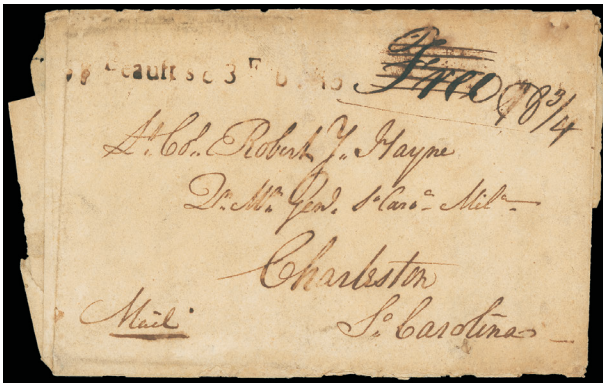 Beauft s c 3 Free 18 3/4
Lt. Col. Robert Y. Hayne
Dr. Mr. Genl. So. Caro. Mila.
Charleston
Mail So. Carolina